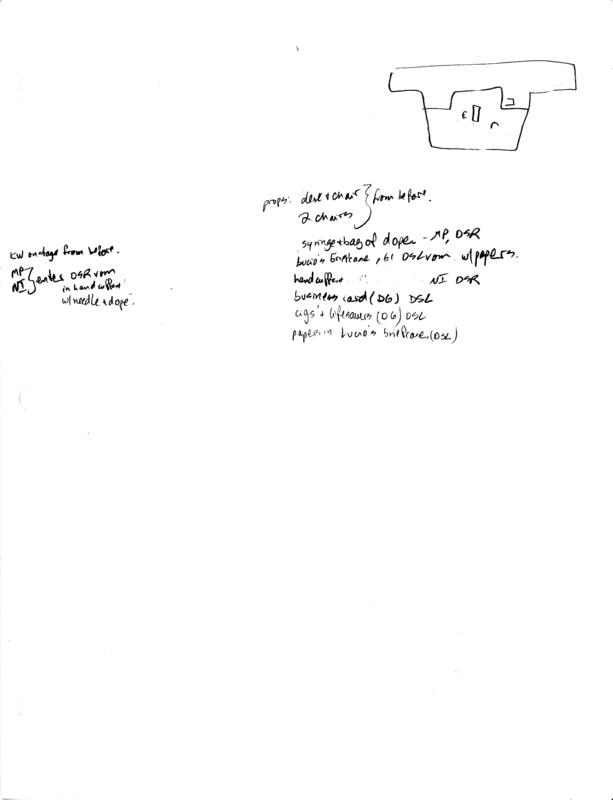 props: desk + chair } from before.
2 chairs
syringe + bag of dope - MP, DSR
Lucio's briefcase, DSL vom w/papers.
handcuffs NI DSR
business card (DG) DSL
cigs + lifesavers (DG) DSL
papers in Lucio's briefcase (DSL)
KW onstage from before.
MP
NI } enter DSR vom
in handcuffs
w/needle + dope